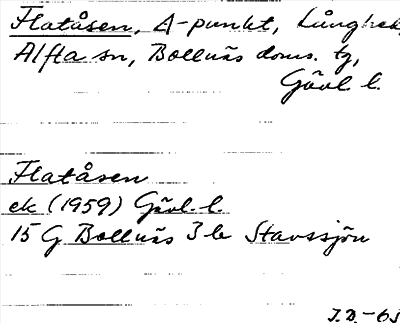 Flatåsen, A-punkt, Långhek,
Alfta sn, Bollnäs doms. tg,
Gävl. l.
Flatåsen
ek (1959) Gävl. l.
15 G Bollnäs 3 b Stavssjön
J.D.-65